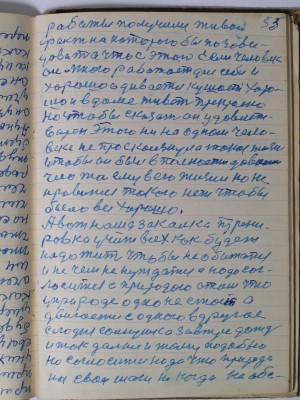 53
работы получили живой
факт на которого бы позави-
довать что с этого семи человек
он много работает для себя и
хорошо одивается кушает хоро-
шо и в доме живет прекрасно
но чтобы сказать он удовлет-
ворен этого ни на одном чело-
веке не проскользнула такая
и чтобы он был в полности доволен
что я в своей жизни но не
такого нет чтобы
было все хорошо.
А вот наша закалка трени-
ровка учит всех как будем
надо жить чтобы не обижатся
и не чем не нуждатся а надо сог-
ласится с природою о том что
у природе одно не стоит а
двигается с одно в другое
сегодня солнушка завтра дождь
и так дальше и тому подобно
но согласится надо что природа
на свои шаги никогда не обе-